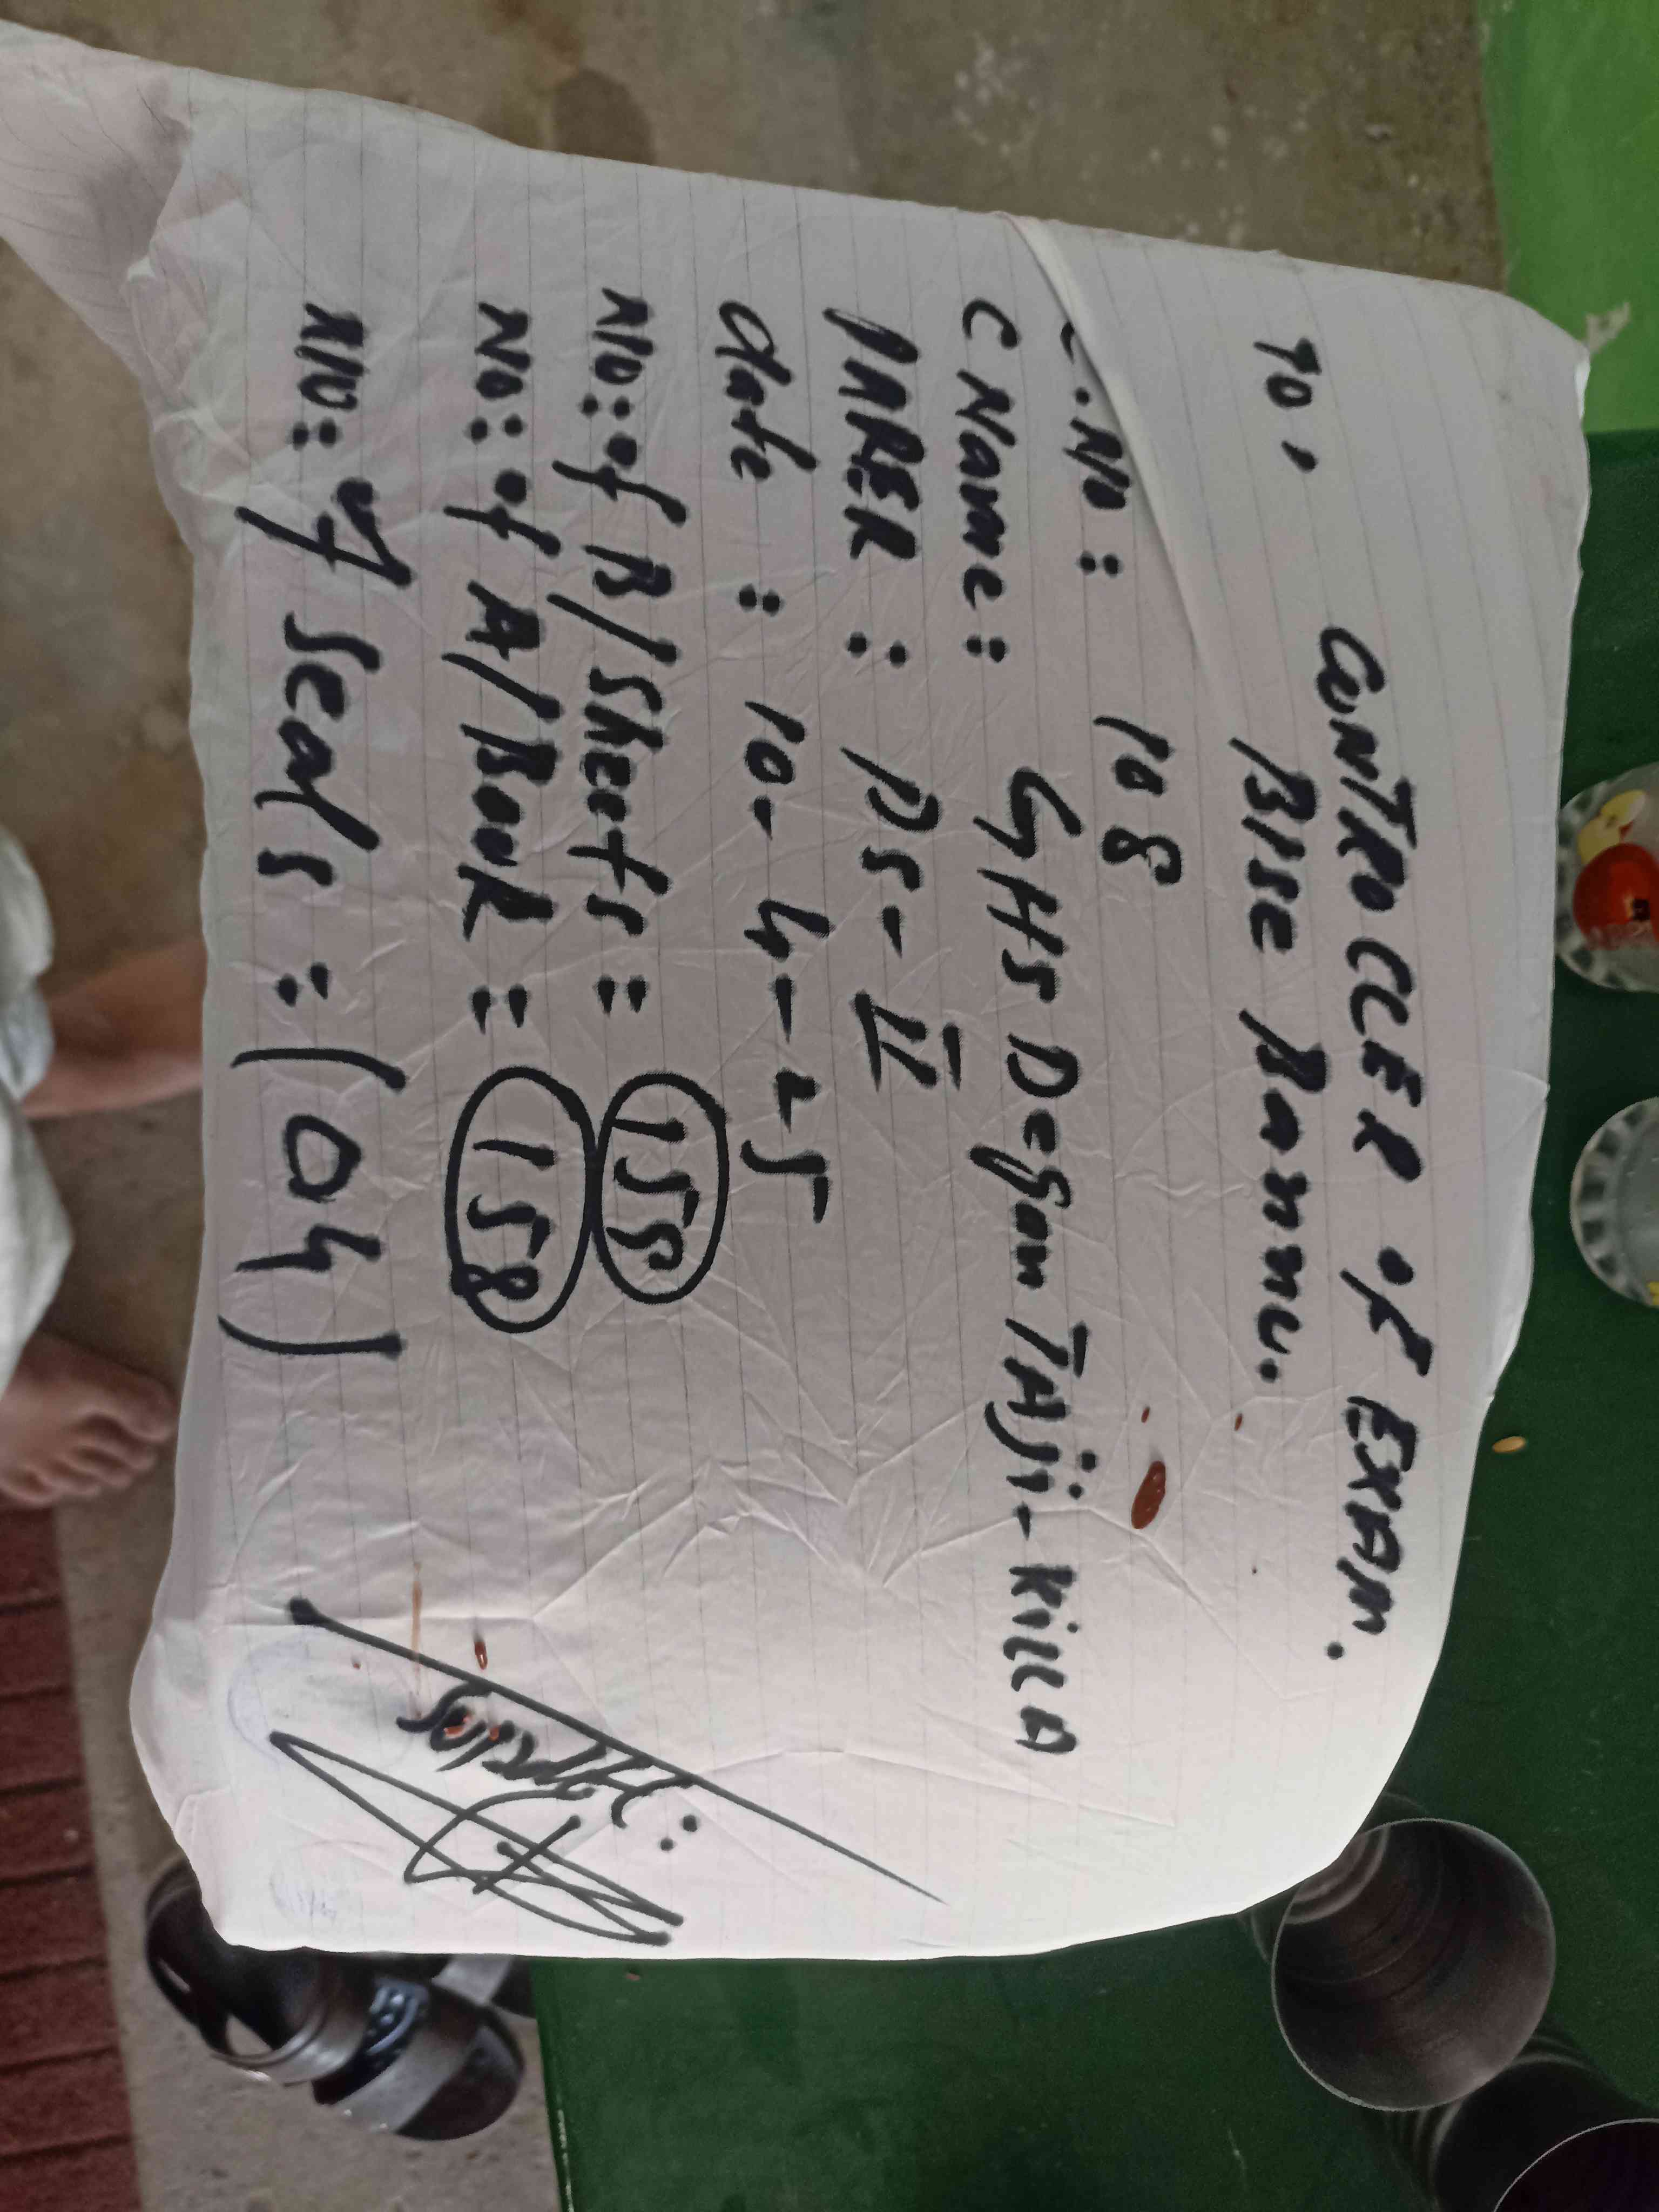 To,
CONTROLLER of EXAM.
BISE Bannu.
C.No: 108
C Name: GHS Degan TAji-Killa
PAPER : PS-II
date : 10-4-25
No: of B/Sheets = 158
No: of A/Book = 158
No: of Seals = (04)